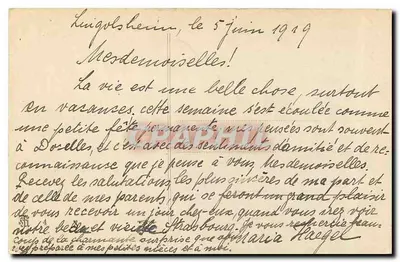 Lingolsheim, le 5 juin 1919
Mesdemoiselles!
La vie est une belle chose, surtout
en vacances, cette semaine s'est écoulée comme
une petite fête, mes pensées sont souvent
à Docelles, et c'est avec des sentiments d'amitié et de re-
connaissance que je pense à vous Mesdemoiselles.
Recevez les salutations les plus sincères de ma part et
de celle de mes parents, qui se feront un grand plaisir
de vous recevoir un jour chez eux, quand vous irez voir
notre belle et vieille Strasbourg. Je vous remercie beau-
coup de la charmante surprise que
préparée à mes petites nièces et à moi.
Maria Haegel